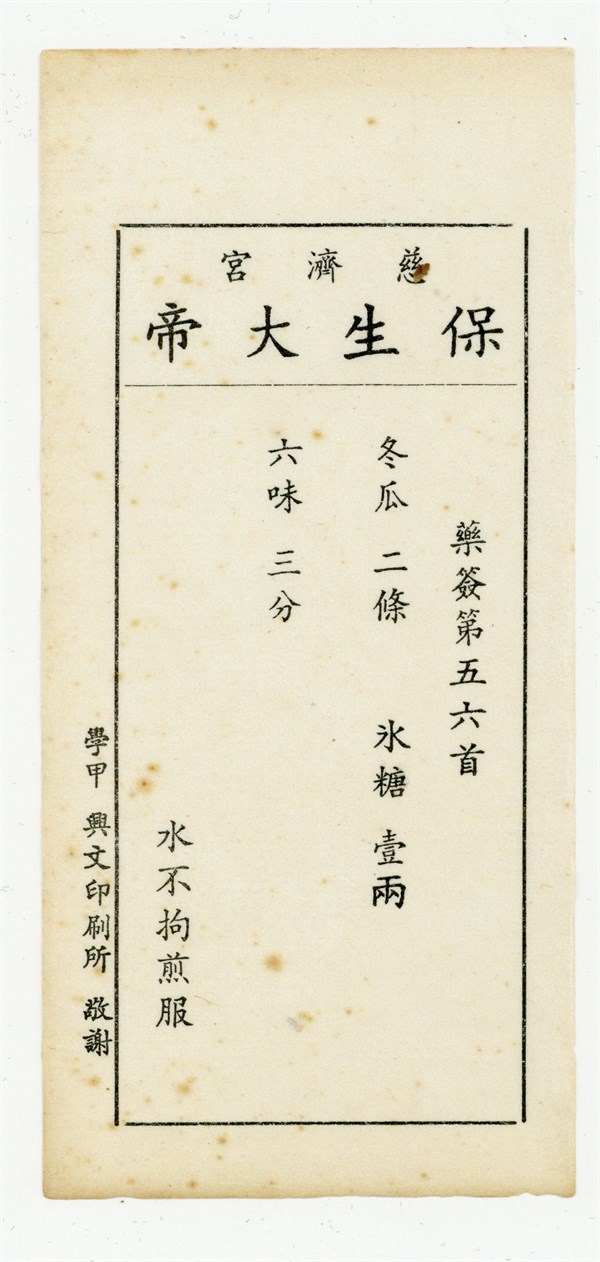 慈濟宮
保生大帝
藥簽第五六首
冬瓜 二條 氷糖 壹兩
六味 三分
水不拘煎服
學甲 興文印刷所 敬謝